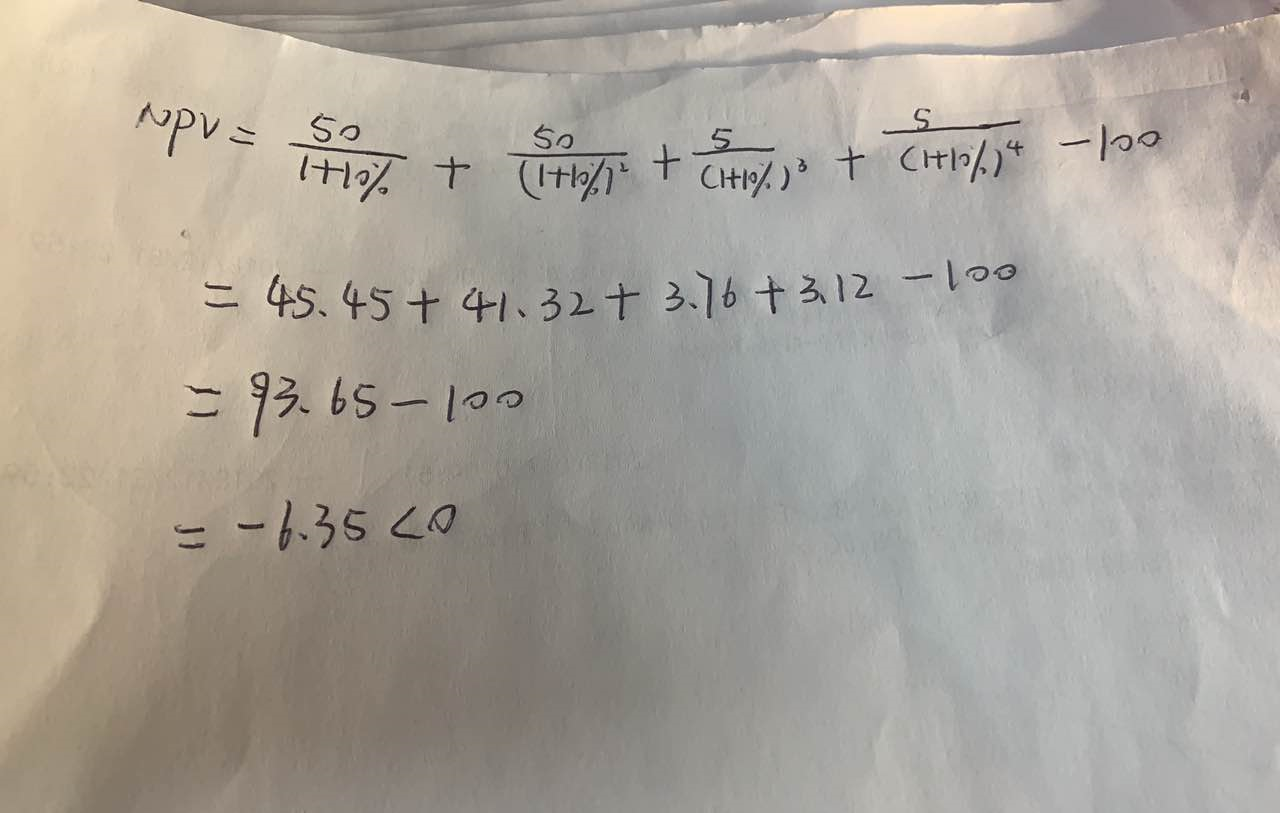 NPV = 50/(1+10%) + 50/(1+10%)² + 5/(1+10%)³ + 5/(1+10%)⁴ - 100
= 45.45 + 41.32 + 3.76 + 3.12 - 100
= 93.65 - 100
= -6.35 < 0